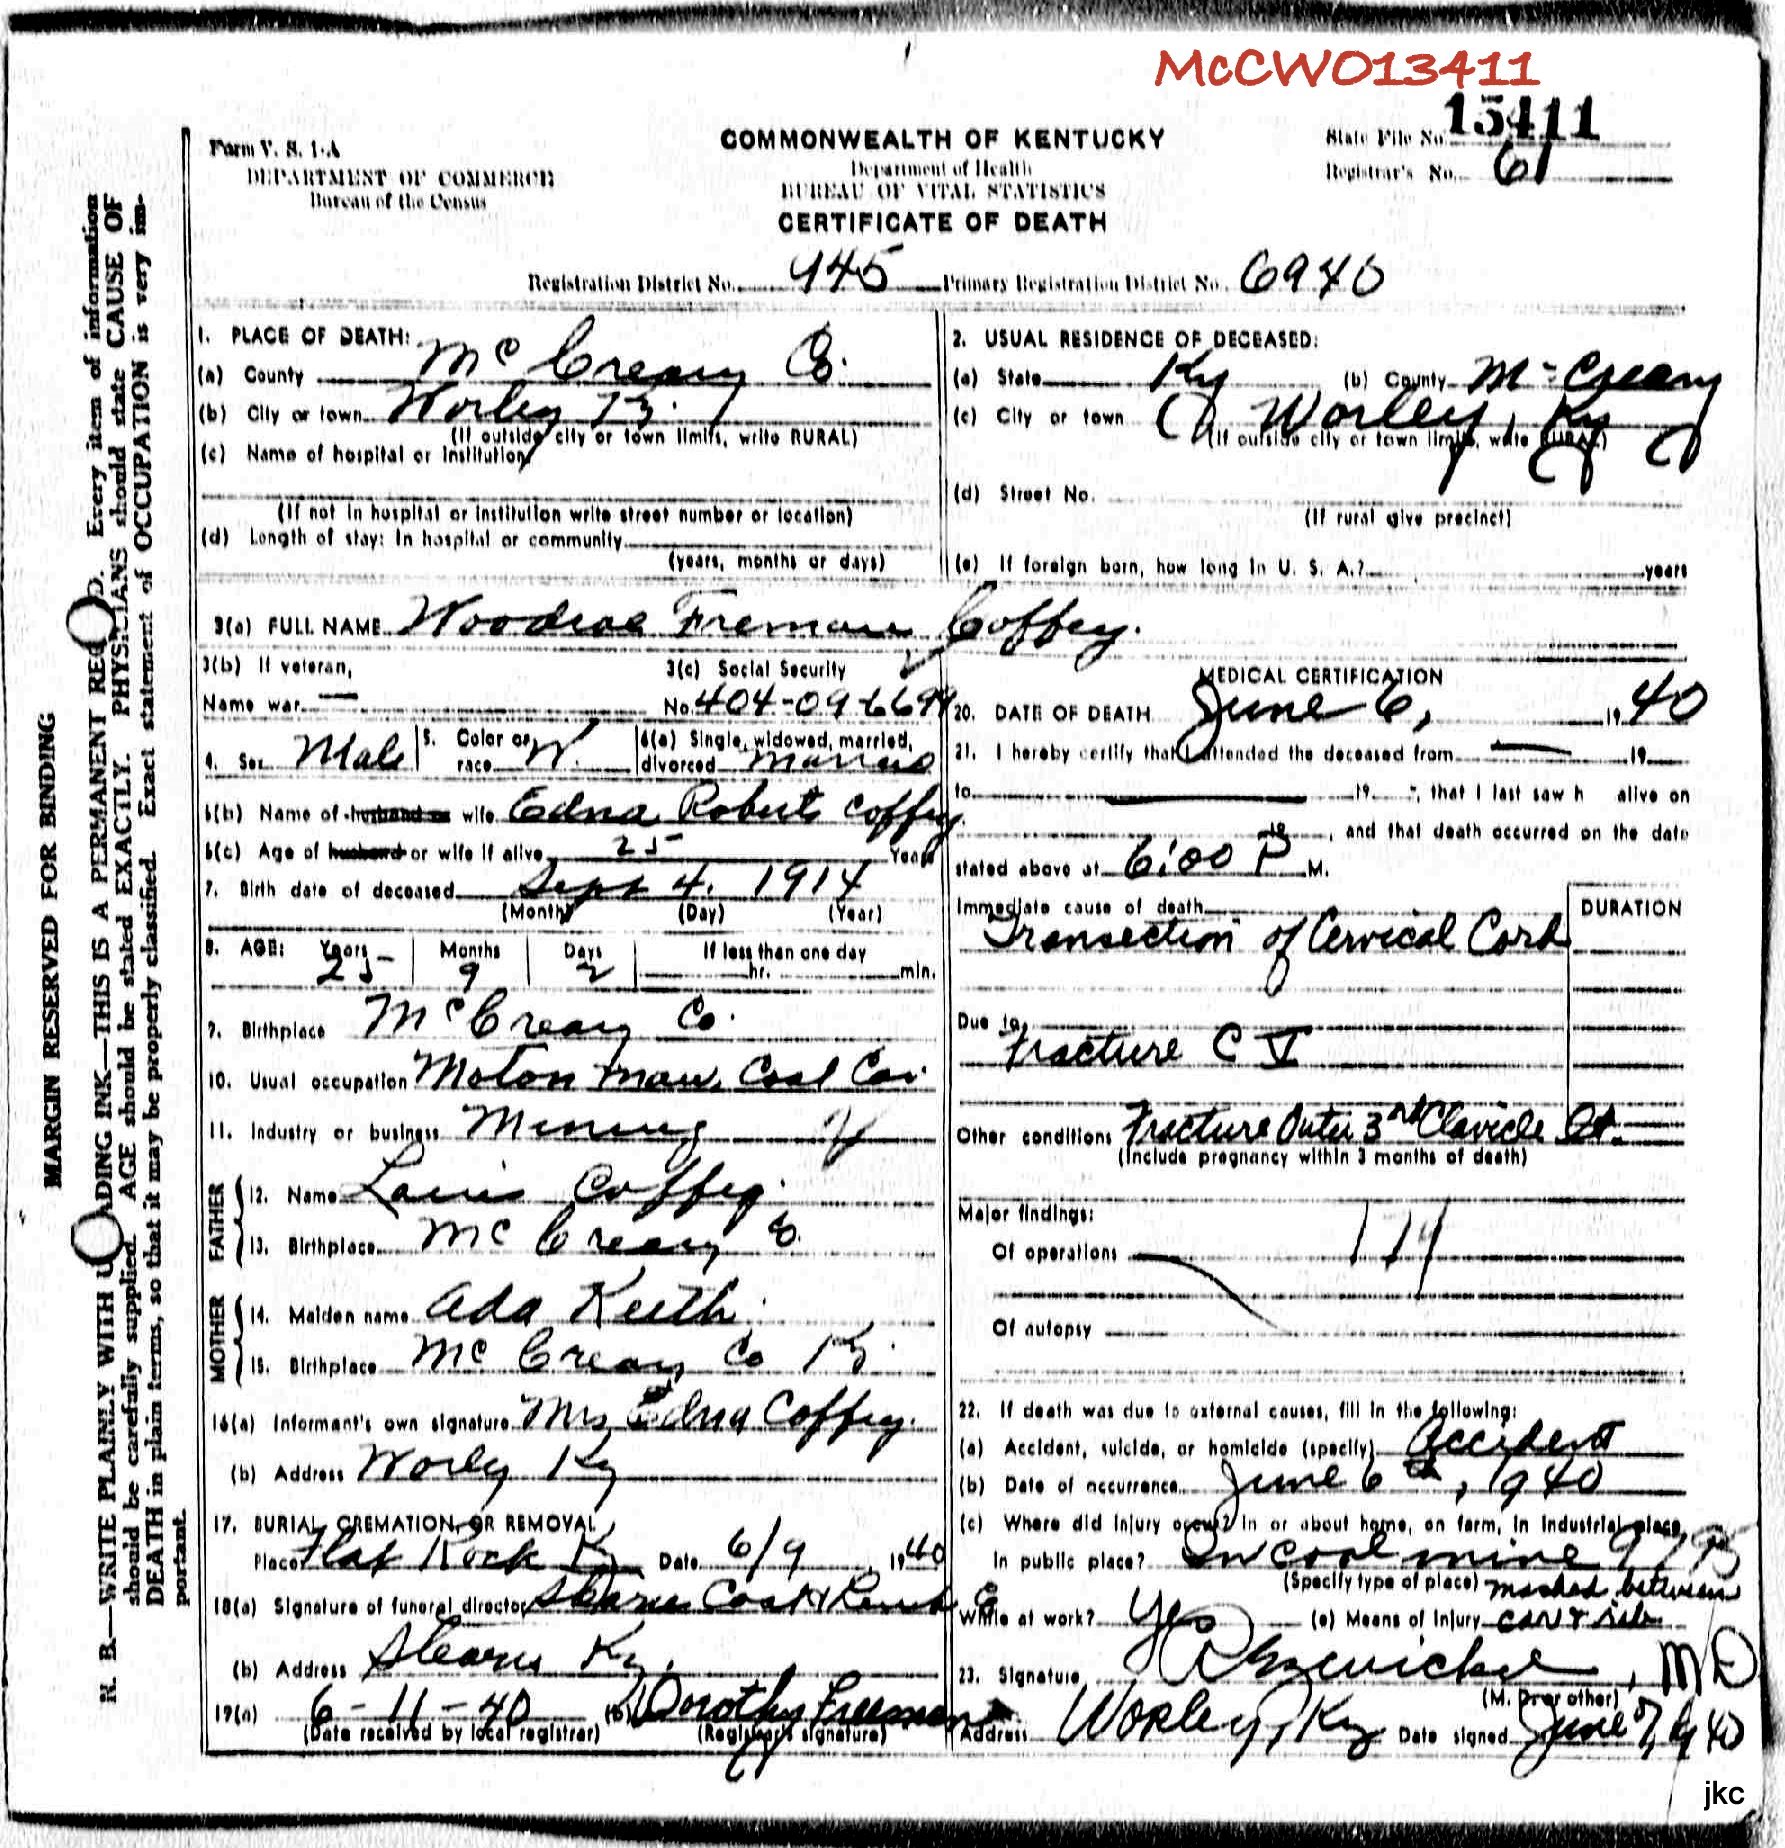 McCWO13411
Form V. S. 1-A
DEPARTMENT OF COMMERCE
Bureau of the Census
COMMONWEALTH OF KENTUCKY
Department of Health
BUREAU OF VITAL STATISTICS
CERTIFICATE OF DEATH
State File No. 13411
Registrar's No. 61
Registration District No. 945 Primary Registration District No. 6940
MARGIN RESERVED FOR BINDING
N. B.—WRITE PLAINLY WITH U ADING INK—THIS IS A PERMANENT REC D. Every item of information
should be carefully supplied. AGE should be stated EXACTLY. PHYSICIANS should state CAUSE OF
DEATH in plain terms, so that it may be properly classified. Exact statement of OCCUPATION is very im-
portant.
1. PLACE OF DEATH:
(a) County McCreary Co.
(b) City or town Worley Ky.
(If outside city or town limits, write RURAL)
(c) Name of hospital or institution
(If not in hospital or institution write street number or location)
(d) Length of stay: In hospital or community
(years, months or days)
2. USUAL RESIDENCE OF DECEASED:
(a) State Ky (b) County McCreary
(c) City or town Worley, Ky
(If outside city or town limits, write RURAL)
(d) Street No.
(If rural give precinct)
(e) If foreign born, how long in U. S. A.? years
3(a) FULL NAME Woodroe Freman Coffey.
3(b) If veteran,
Name war —
3(c) Social Security
No. 404-09-6699
4. Sex Male
5. Color or race W.
6(a) Single, widowed, married,
divorced married
6(b) Name of husband or wife Edna Roberts Coffey
6(c) Age of husband or wife if alive 25 Years
7. Birth date of deceased Sept 4. 1914
(Month) (Day) (Year)
8. AGE: Years 25 Months 9 Days 2 If less than one day
hr. min.
9. Birthplace McCreary Co.
10. Usual occupation Moton man, Coal Co.
11. Industry or business Mining
FATHER
12. Name Coffey
13. Birthplace McCreary Co.
MOTHER
14. Maiden name Ada Keith
15. Birthplace McCreary Co Ky.
16(a) Informant's own signature Mrs Edna Coffey.
(b) Address Worley Ky
17. BURIAL, CREMATION, OR REMOVAL
Place Flat Rock Ky Date 6/9 1940
18(a) Signature of funeral director Stearns Coal &
(b) Address Stearns Ky.
19(a) 6-11-40 (b) Dorothy Freeman
(Date received by local registrar) (Registrar's signature)
MEDICAL CERTIFICATION
20. DATE OF DEATH June 6, 1940
21. I hereby certify that I attended the deceased from — 19
to — 19 , that I last saw h alive on
19 , and that death occurred on the date
stated above at 6:00 P M.
Immediate cause of death
DURATION
Transection of Cervical Cord
Due to
Fracture C V
Other conditions Fracture Outer 3rd Clavicle
(Include pregnancy within 3 months of death)
Major findings:
Of operations
Of autopsy
22. If death was due to external causes, fill in the following:
(a) Accident, suicide, or homicide (specify) Accident
(b) Date of occurrence June 6th, 1940
(c) Where did injury occur? In or about home, on farm, in industrial place,
in public place? In coal mine
(Specify type of place) mashed between
While at work? Yes (e) Means of Injury car & rib
23. Signature , MD
(M. D. or other)
Address Worley, Ky Date signed June 7, 1940
jkc